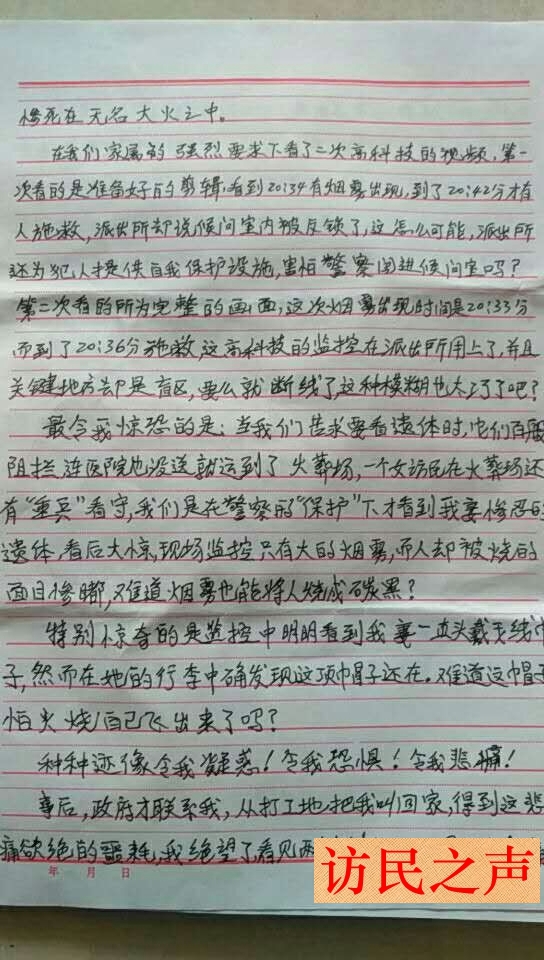 惨死在无名大火之中。
在我们家属的强烈要求下看了二次高科技的视频,第一
次看的是准备好的剪辑,看到20:34有烟雾出现,到了20:42分才有
人施救,派出所却说候问室内被反锁了,这怎么可能,派出所
还为犯人提供自我保护设施,害怕警察闯进候问室吗?
第二次看的所为完整的画面,这次烟雾出现时间是20:33分
而到了20:36分施救,这高科技的监控在派出所用上了,并且
关键地方却是盲区,要么就断线了,这种模糊也太巧了吧?
最令我惊恐的是:当我们告求要看遗体时,它们百般
阻拦连医院也没送就运到了火葬场,一个女访民在火葬场还
有“重兵”看守,我们是在警察的“保护”下才看到我妻惨死的
遗体,看后大惊,现场监控只有大的烟雾,而人却被烧的
面目惨睹,难道烟雾也能将人烧成碳黑?
特别惊奇的是监控中明明看到我妻一直头戴毛线帽
子,然而在她的行李中确发现这顶帽子还在。难道这帽子
怕火烧自己飞出来了吗?
种种迹像令我疑惑!令我恐惧!令我悲痛!
事后,政府才联系我,从打工地把我叫回家,得到这悲
痛欲绝的噩耗,我绝望了看见两
年 月 日
访民之声